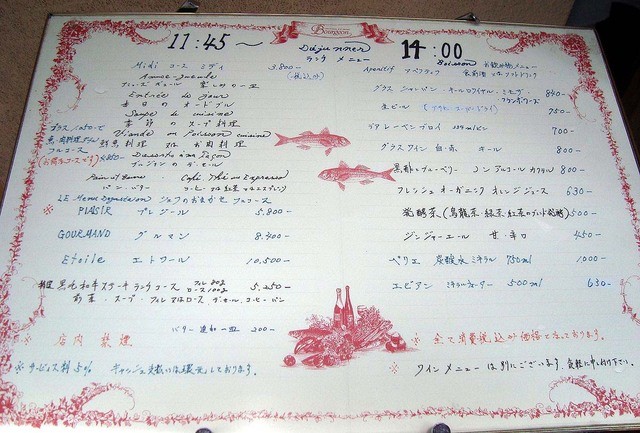 Bourgeon
11:45～ Dejeuner 14:00
ランチ メニュー
Midi コース ミディ 3,800-
(税込み)
Amuse-gueule
Entrée du jour
本日のオードブル
Soupe de cuisine
季節のスープ料理
Viande ou Poisson cuisine
魚料理 又は お肉料理
Desserts à ma façon
Pain et Beurre Café Thé ou Expresso
パン、バター コーヒー 又は 紅茶 又は エスプレッソ
LE Menu Dégustation シェフのおまかせ フルコース
※ PLAISIR プレジール 5,800-
GOURMAND グルマン 8,400-
Etoile エトワール 10,500-
黒毛和牛ステーキランチコース フィレ 80g ロース 100g 5,250-
前菜・スープ・フィレ 又は ロース・デセール・コーヒー・パン
バター 追加一皿 200-
※ 店内 禁煙
※ サービス料5%
Boisson お飲み物メニュー
Aperitif アペリティフ 食前酒 又は ソフトドリンク
グラス シャンパン・キールロワイヤル・ミモザ・フランボワーズ 840-
生ビール 750-
700-
グラスワイン 白・赤 キール 800-
黒酢とブルーベリー ノンアルコールカクテル 800-
フレッシュオーガニック オレンジジュース 630-
発酵茶(烏龍茶・緑茶・紅茶のブレンド発酵) 500-
ジンジャーエール 甘・辛口 450-
ペリエ 炭酸水ミネラル 750ml 1000-
エビアン ミネラルウォーター 500ml 630-
※ 全て消費税込み価格となっております。
※ ワインメニューは別にございます。気軽に申し付け下さい。